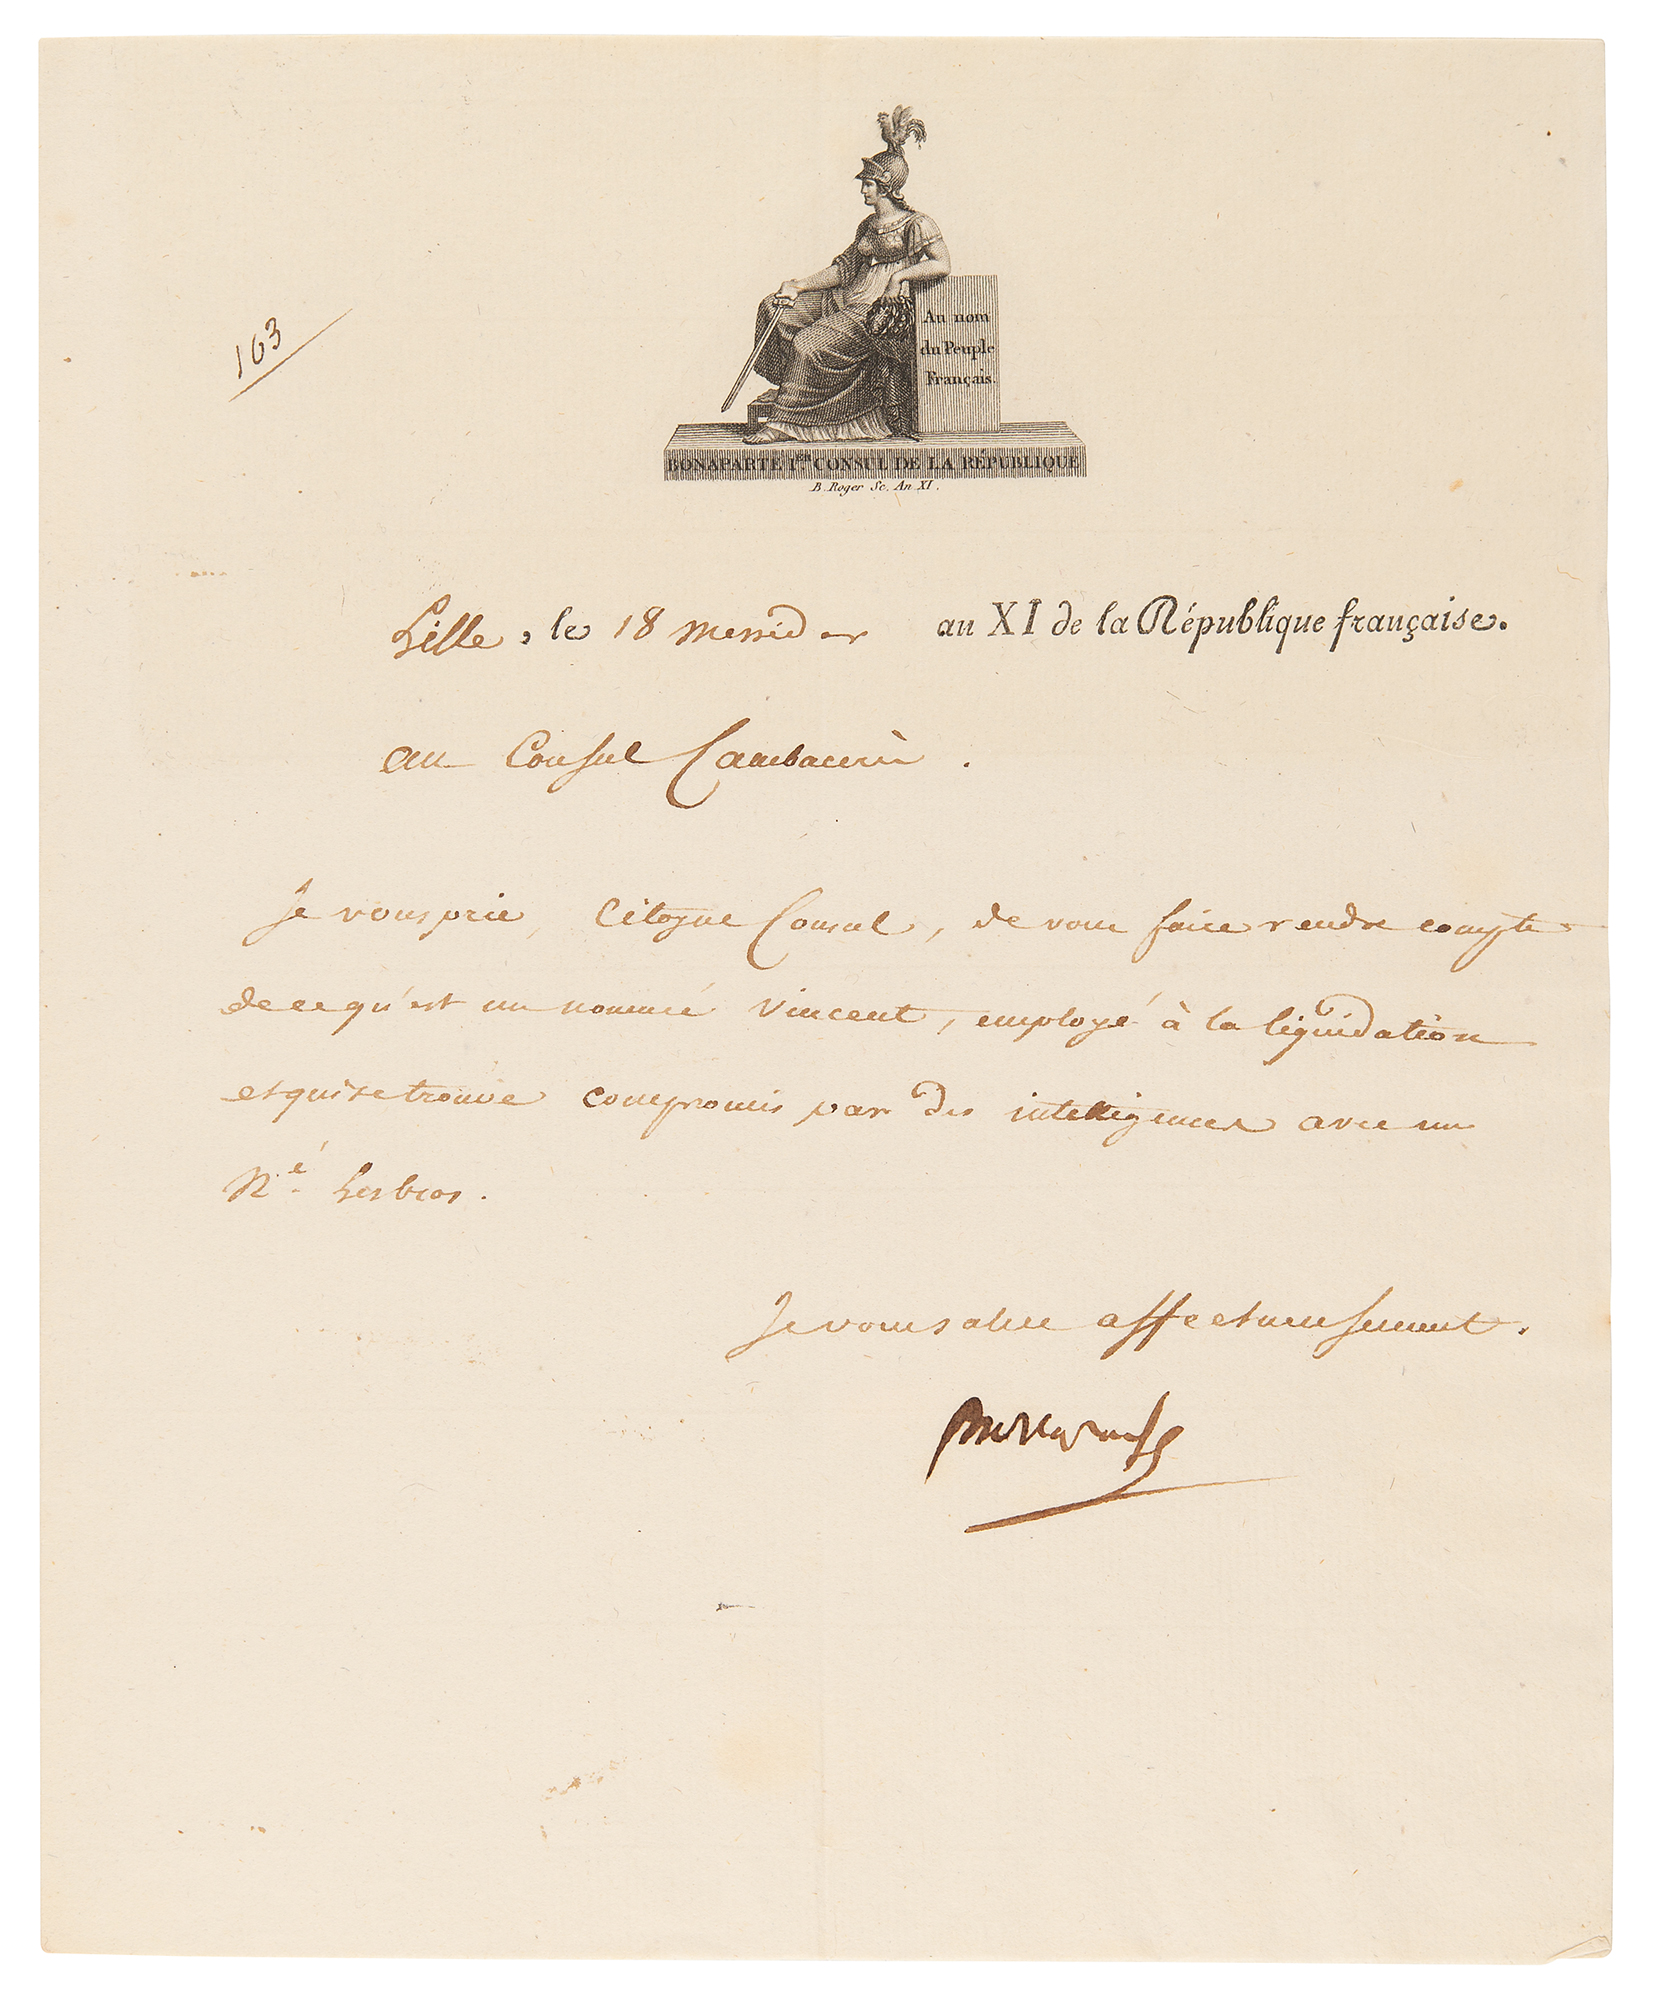 163
Au nom
du Peuple
Français.
BONAPARTE I.ER CONSUL DE LA RÉPUBLIQUE
B. Roger Sc. An XI.
Lille, le 18 messidor an XI de la République française.
au Consul Cambacérès.
Je vous prie, Citoyen Consul, de vous faire rendre compte
de ce qu'est un nommé Vincent, employé à la liquidation
et qui se trouve compromis par des intelligences avec un
Né.
Je vous salue affectueusement.
Bonaparte